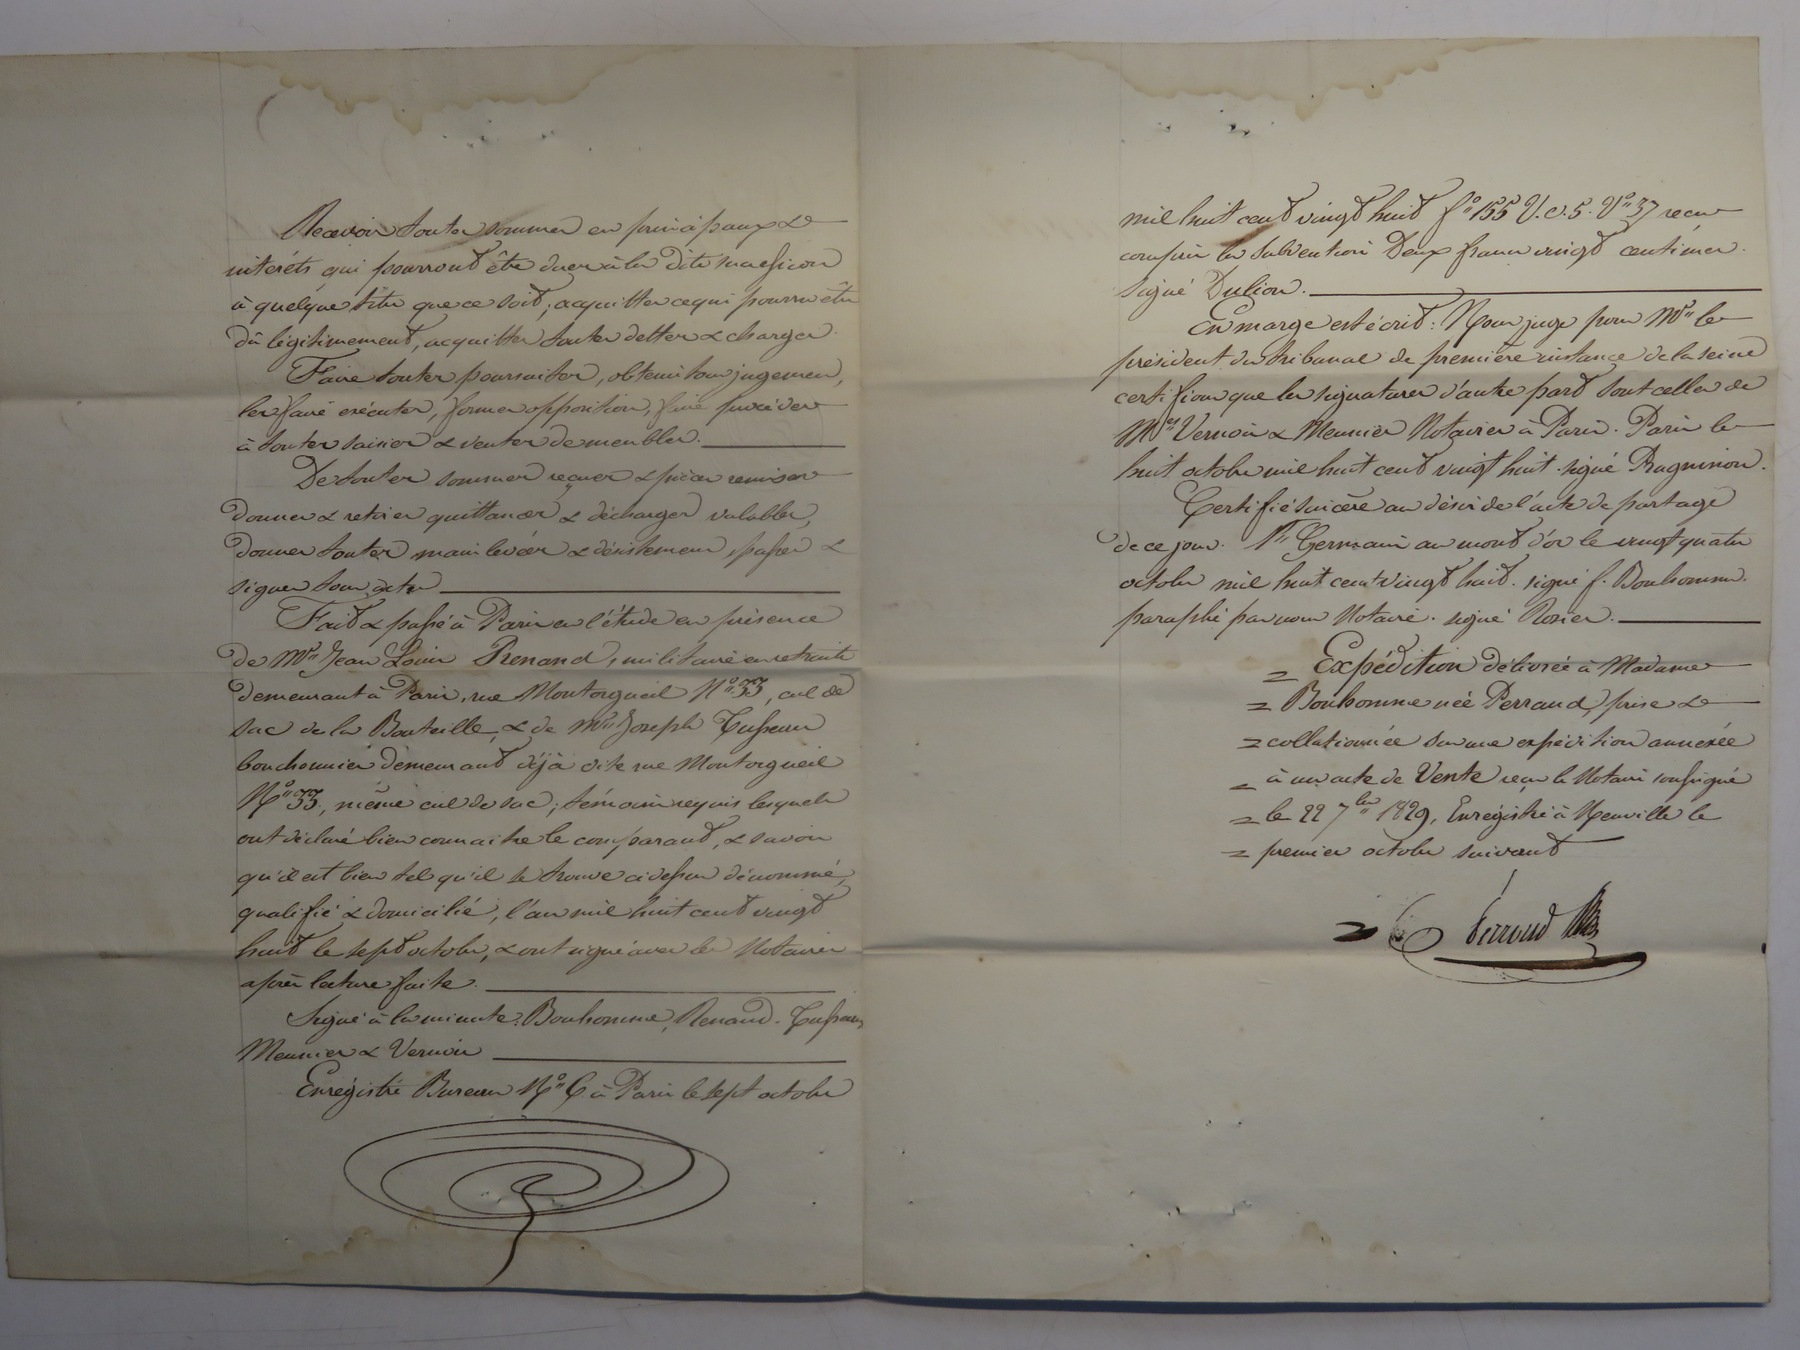 Recevoir toutes sommes en principaux &
intérêts qui pourront être dues à la dite succession
à quelque titre que ce soit, acquitter ce qui pourra être
dû légitimement, acquitter toutes dettes & charges.
Faire toutes poursuites, obtenir tous jugemens,
les faire exécuter, former opposition, faire procéder
à toutes saisies & ventes de meubles.
De toutes sommes reçues & pièces remises
donner & retirer quittances & décharges valables,
donner toutes main levées & désistemens, passer &
signer tous actes
Fait & passé à Paris en l'étude en présence
de Mr. Jean Louis Renaud, militaire en retraite
demeurant à Paris, rue Montorgueil No. 33, cul de
sac de la Bouteille, & de Mr. Joseph
bouchonnier demeurant déjà dite rue Montorgueil
No. 33, même cul de sac; témoins requis lesquels
ont déclaré bien connaitre le comparant, & savoir
qu'il est bien tel qu'il se trouve ci dessus dénommé,
qualifié & domicilié, l'an mil huit cent vingt
huit le sept octobre, & ont signé avec les Notaires
après lecture faite.
Signé à la minute: Bonhomme, Renaud.
Meunier & Vernois
Enrégistré Bureau No. 6 à Paris le sept octobre
mil huit cent vingt huit fo. 155 V. c. 5. Vo. 37 reçu
compris la subvention Deux francs vingt centimes.
signé Dulion.
En marge est écrit: Nous juge pour Mr. le
président du tribunal de première instance de la seine
certifions que les signatures d'autre part sont celles de
Mes. Vernois & Meunier Notaires à Paris. Paris le
huit octobre mil huit cent vingt huit. signé
Certifié sincère au désir de l'acte de partage
de ce jour. St. Germain au mont d'or le vingt quatre
octobre mil huit cent vingt huit. signé f. Bonhomme.
paraphé par nous Notaire. signé Rosier.
= Expédition délivrée à Madame
= Bonhomme née Perraud, prise &
= collationnée sur une expédition annexée
= à un acte de Vente reçu le Notaire soussigné
= le 22 7bre 1829, Enrégistré à Neuville le
= premier octobre suivant